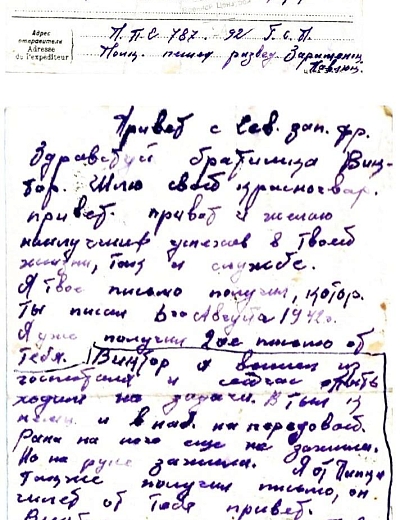 Адрес
отправителя
Adresse
de l'expéditeur
П.П.С 787. 92 Г.С.П.
пешей развед.
Привет с Сев. зап. фр.
Здравствуй братишка Вик-
тор. Шлю свой красногвар.
привет. привет и желаю
наилучших успехов в твоей
жизни, так и службе.
Я твое письмо получил, котор.
ты писал 6го Августа 1942г.
Я уже получил 2ое письмо от
тебя. Виктор я вышел из
госпиталя и сейчас опять
ходим на задачи. В тыл к
немц. и в наб. на передовой.
Рана на ноге еще не зажила.
Но на руке зажила. Я от
также получил письмо, он
от тебя привет.